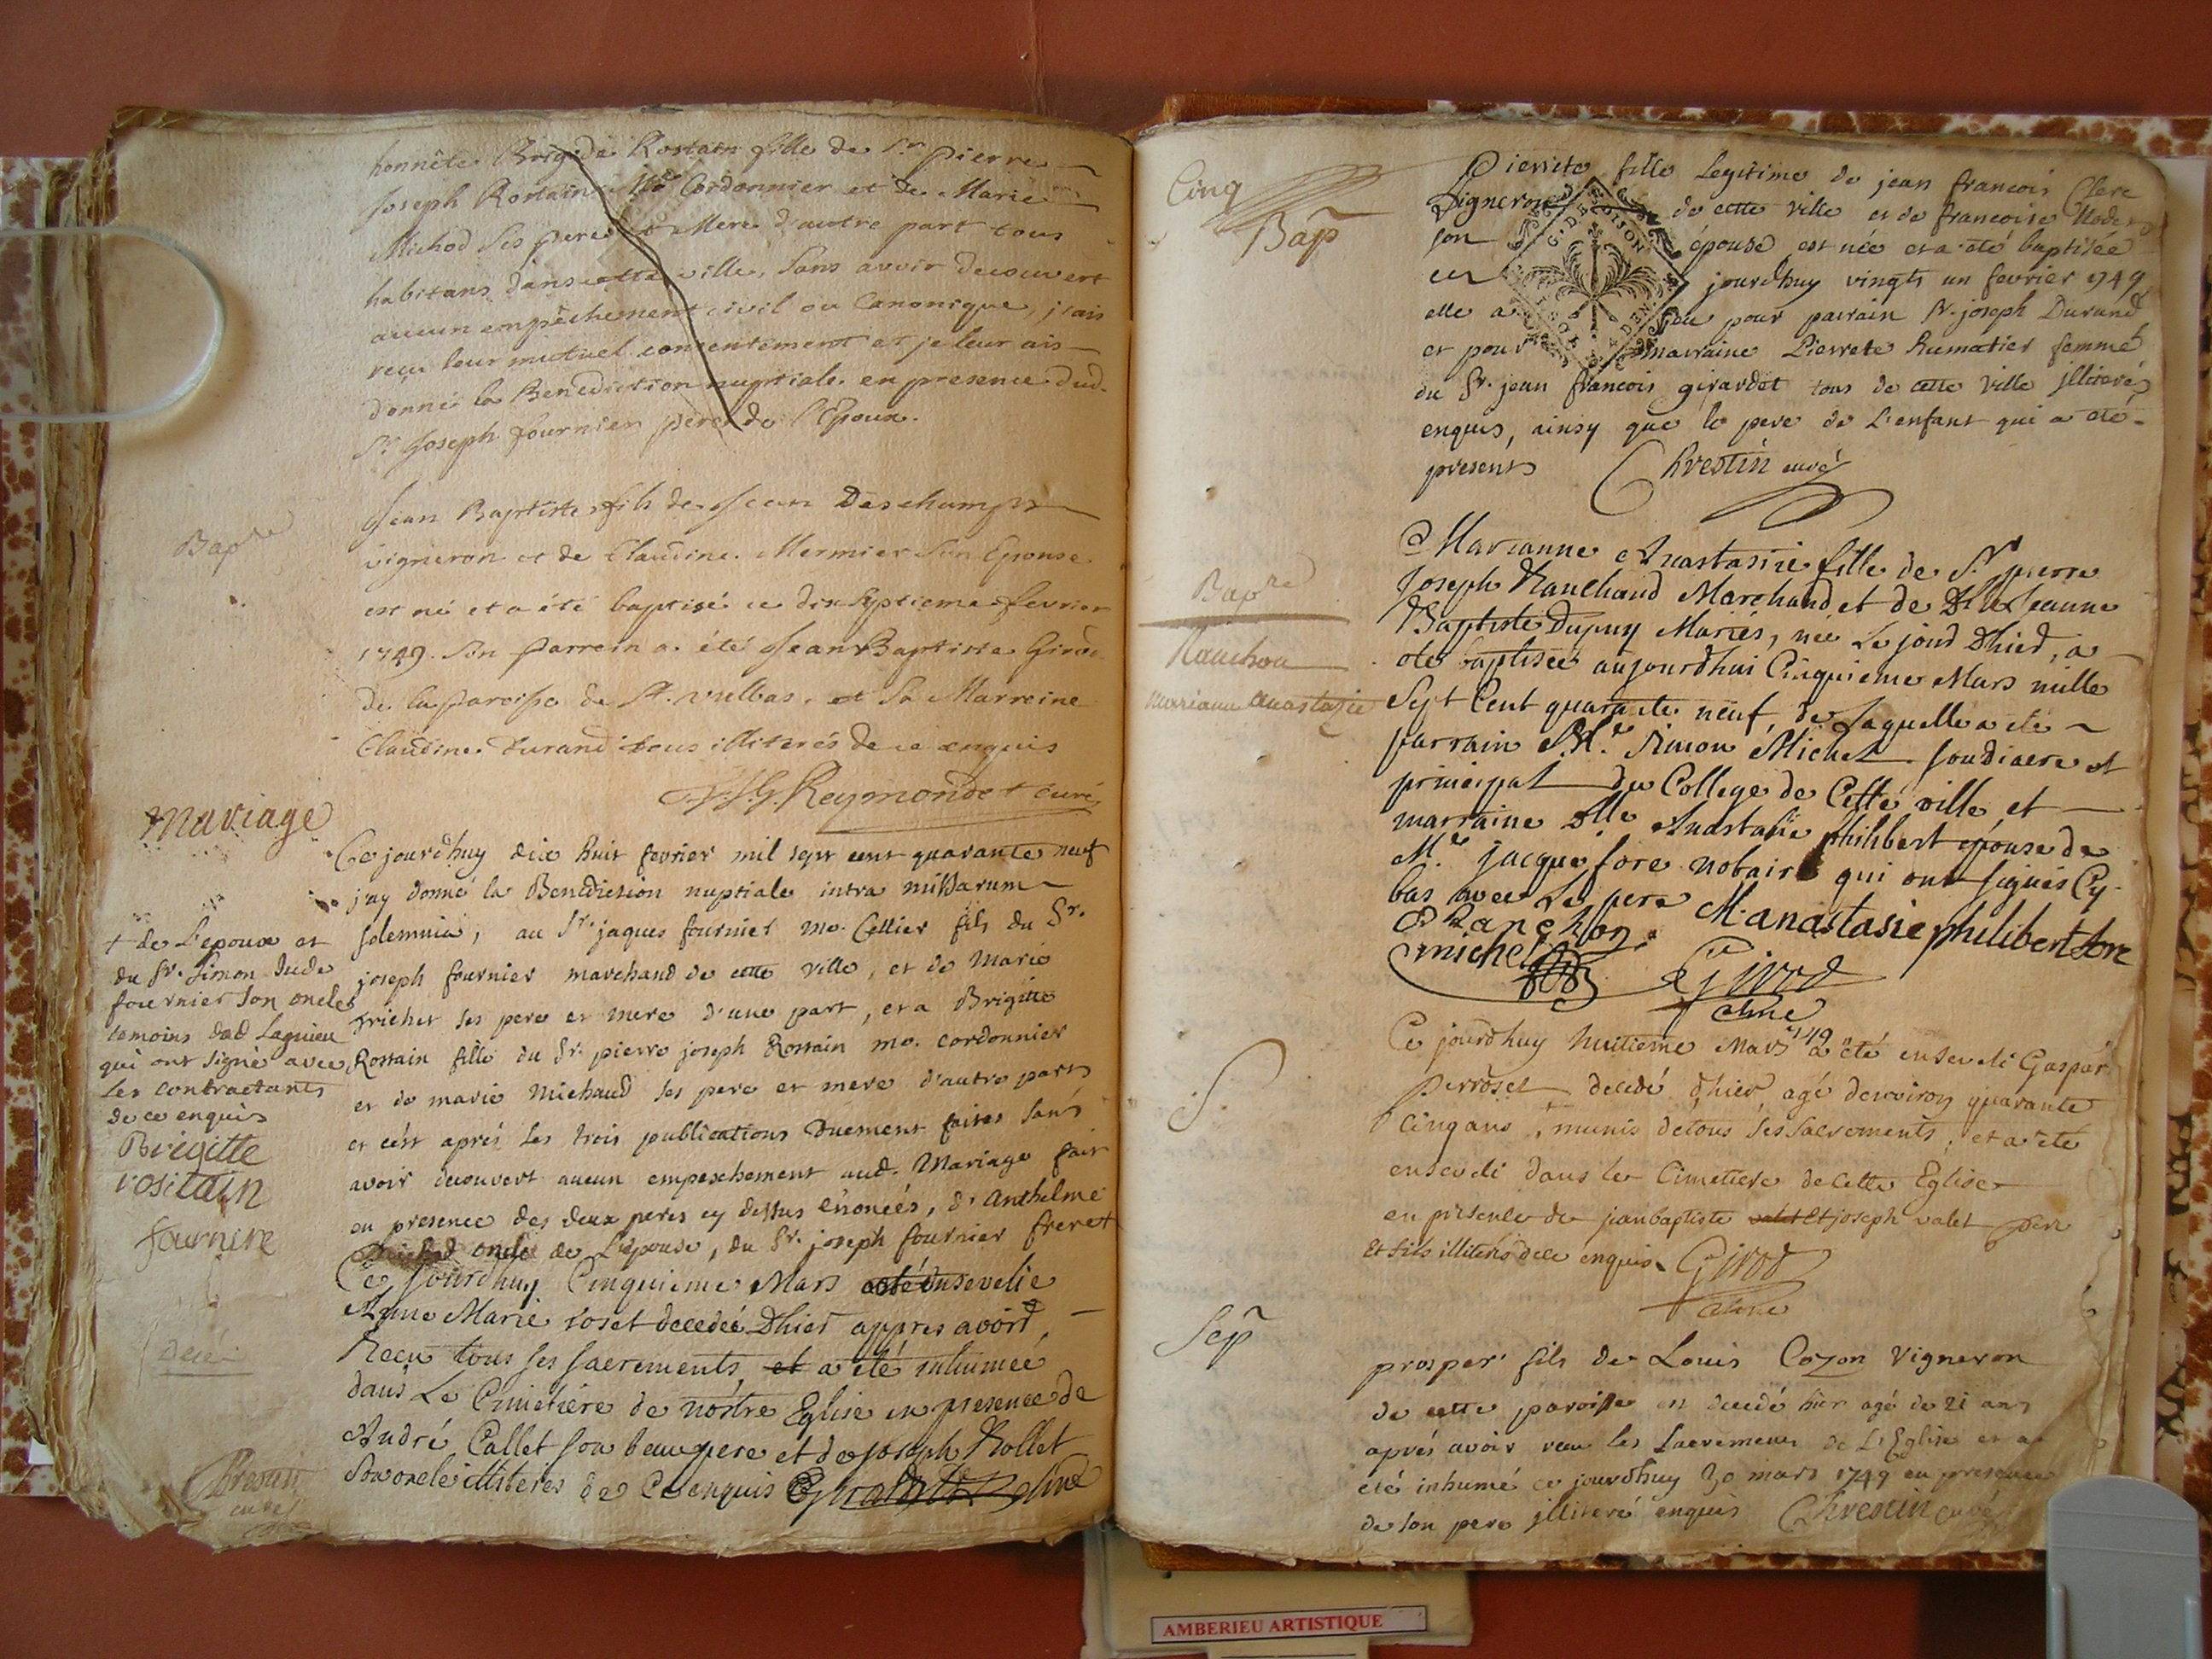 honnête Brigide Rostain fille de Sr. pierre
Joseph Rostain Me Cordonnier et de Marie
Michod Ses pere et Mere d'autre part tous
habitans dans cette ville, Sans avoir decouvert
aucun empêchement civil ou Canonique, j'ais
reçu leur mutuel consentement et je leur ais
donné la Benediction nuptiale en presence dud.
Sr. Joseph fournier pere de l'Epoux.
Bapme
Jean Baptiste fils de Jean Deschamps
vigneron et de Claudine Mermier Son Epouse
est né et a été baptisé ce dix Septieme fevrier
1749. Son Parrein a été Jean Baptiste
de la paroisse de St. vulbas, et Sa Marreine
Claudine Durand tous illiterés de ce enquis
Reymondet curé
Mariage
Ce jourdhuy dix huit fevrier mil sept cent quarante neuf
j'ay donné la Benediction nuptiale intra missarum
solemnia, au Sr. jaques fournier me. Cellier fils du Sr.
joseph fournier marchand de cette ville, et de Marie
Trichet ses pere et mere d'une part, et a Brigitte
Rostain fille du Sr. pierre joseph Rostain me. cordonnier
et de marie Michaud ses pere et mere d'autre part
et c'est aprés les trois publications duement faites sans
avoir decouvert aucun empeschement aud. Mariage fait
en presence des deux peres cy dessus enoncés, d'Anthelme
oncle de L'epouse, du Sr. joseph fournier frere +
+ de L'epoux et
du Sr. Simon Jude
fournier son oncle
temoins dud. Lagnieu
qui ont signé avec
Les contractants
de ce enquis
Brigitte
rositain
fournire
Ce jourdhuy Cinquieme Mars a été Ensevelie
Anne Marie roset decedée Dhier appres avoir
Reçu tous ses sacrements, et a été inhumée
dans Le Cimetiére de nostre Eglise en presence de
André Callet son beaupere et de joseph Rollet
Son oncle illiteres de Ce enquis
Chrestin
curé
Cinq
Bap
Pierrete fille Legitime de jean francois Clere
Vigneron de cette ville et de francoise
son épouse est née et a été baptisée
ce jourdhuy vingt un fevrier 1749
elle a eu pour parrain Sr. joseph Durand
et pour marraine Pierrete humatier femme
du Sr. jean francois girardot tous de cette Ville jlliterés
enquis, ainsy que le pere de L'enfant qui a été
present Chrestin curé
G. D. DIJON
Bapme
Ranchon
mariane anastazie
Marianne Anastasie fille de Sr. pierre
Joseph Ranchaud Marchand et de Dlle Jeanne
Baptiste Dupuy Mariés, née Le jour Dhier, a
oté baptisée aujourdhui Cinquieme Mars mille
Sept Cent quarante neuf, de Laquelle a été
parrain Mre. Simon Michel soudiacre et
principal du College de Cette ville, et
marraine Dlle Anastasie philibert épouse de
Me. jacque fore notaire qui ont signés Cy
bas avec Le pere M. anastasie philibert fore
Ranchon
michel
Girod
S.
Ce jourdhuy huitieme Mars 1749 a été enseveli Gaspar
perroset decedé d'hier agé denviron quarante
Cinq ans, munis de tous ses Sacrements, et a été
enseveli dans le Cimetiere de Cette Eglise
en presence de jean baptiste valet Et joseph valet pere
Et fils illiterés de ce enquis. Girod
Sep
prosper fils de Louis Cozon Vigneron
de cette paroisse est decedé hier agé de 21 ans
aprés avoir recu les Sacremens de L'Eglise et a
été inhumé ce jourdhuy 30 mars 1749 en presence
de son pere jlliteré enquis Chrestin curé
AMBERIEU ARTISTIQUE